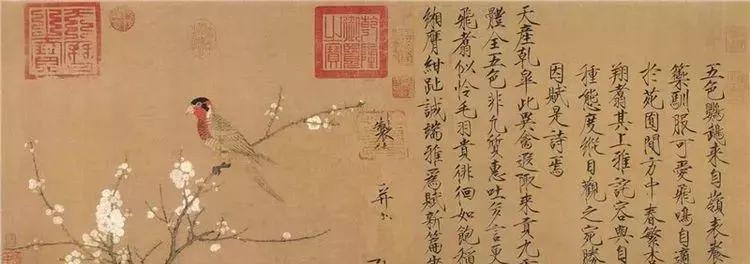 五色鸚鵡來自嶺表養
籞馴服可愛飛鳴自適
於苑囿間方中春繁杏
翔翥其上雅詫容與自
種態度縱目觀之宛勝
因賦是詩焉
天產乾皋此異禽遐陬來貢九
體全五色非凡質惠吐多言更
飛翥似憐毛羽貴徘徊如飽稻
緗膺紺趾誠端雅為賦新篇步
製